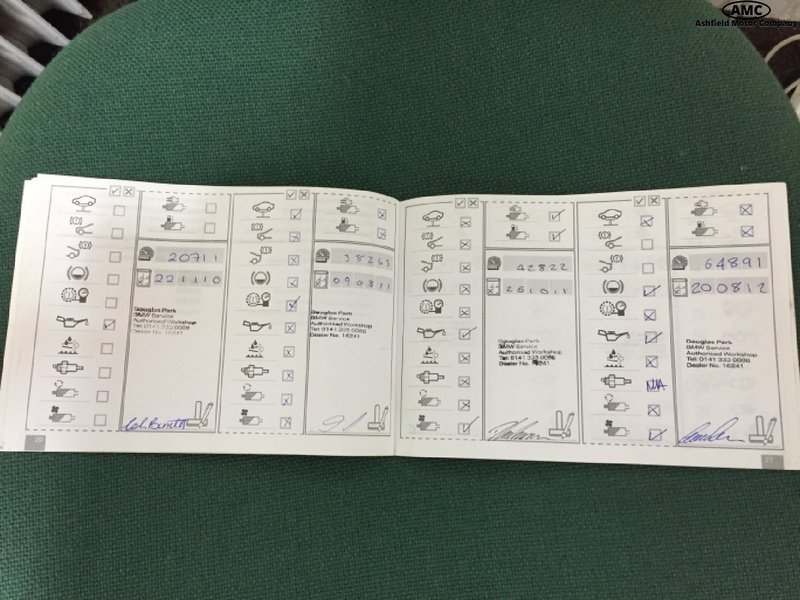 AMC
Ashfield Motor Company
20711
221110
Douglas Park
BMW Service
Authorised Workshop
Tel: 0141 333 0088
Dealer No. 16241
38263
090811
Douglas Park
BMW Service
Authorised Workshop
Tel: 0141 333 0088
Dealer No. 16241
42822
251011
Douglas Park
BMW Service
Authorised Workshop
Tel: 0141 333 0088
Dealer No. 16241
64891
200812
N/A
Douglas Park
BMW Service
Authorised Workshop
Tel: 0141 333 0088
Dealer No. 16241
20
21